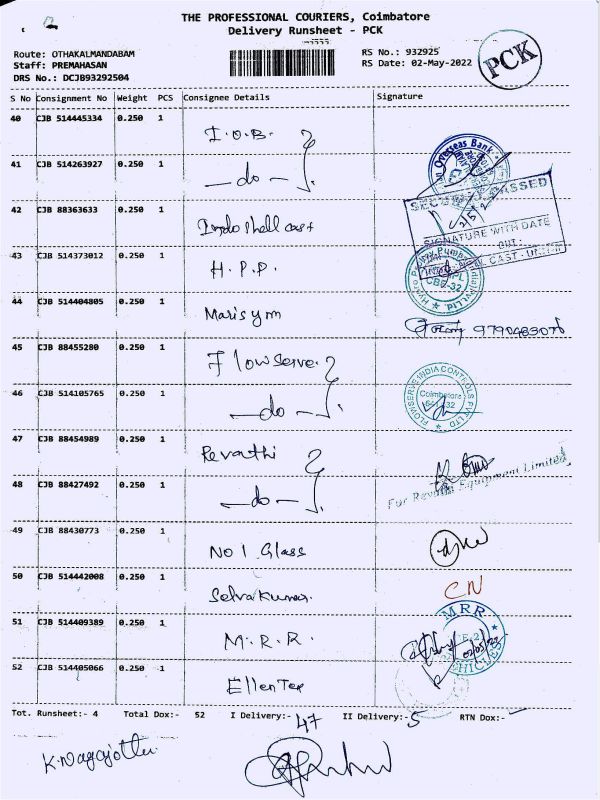 THE PROFESSIONAL COURIERS, Coimbatore
Delivery Runsheet - PCK
PCK
Route: OTHAKALMANDABAM
Staff: PREMAHASAN
DRS No.: DCJB93292504
RS No.: 932925
RS Date: 02-May-2022
S No Consignment No Weight PCS Consignee Details Signature
40 CJB 514445334 0.250 1 I.O.B.
41 CJB 514263927 0.250 1 -do-
42 CJB 88363633 0.250 1 Indo shell cast
SIGNATURE WITH DATE
OUT:
43 CJB 514373012 0.250 1 H.P.P.
CBE-32
44 CJB 514404805 0.250 1 Marisym 9790483076
45 CJB 88455280 0.250 1 Flowserve
46 CJB 514105765 0.250 1 -do-
FLOWSERVE INDIA CONTROLS PVT LTD
Coimbatore
47 CJB 88454989 0.250 1 Revathi
48 CJB 88427492 0.250 1 -do-
For Revathi Equipment Limited,
49 CJB 88430773 0.250 1 No 1 Glass
50 CJB 514442008 0.250 1 Selvakumar CN
51 CJB 514409389 0.250 1 M.R.R.
MRR VEHICLES
02/05/22
52 CJB 514405066 0.250 1 Ellen Tex
Tot. Runsheet:- 4 Total Dox:- 52 I Delivery:- 47 II Delivery:- 5 RTN Dox:-